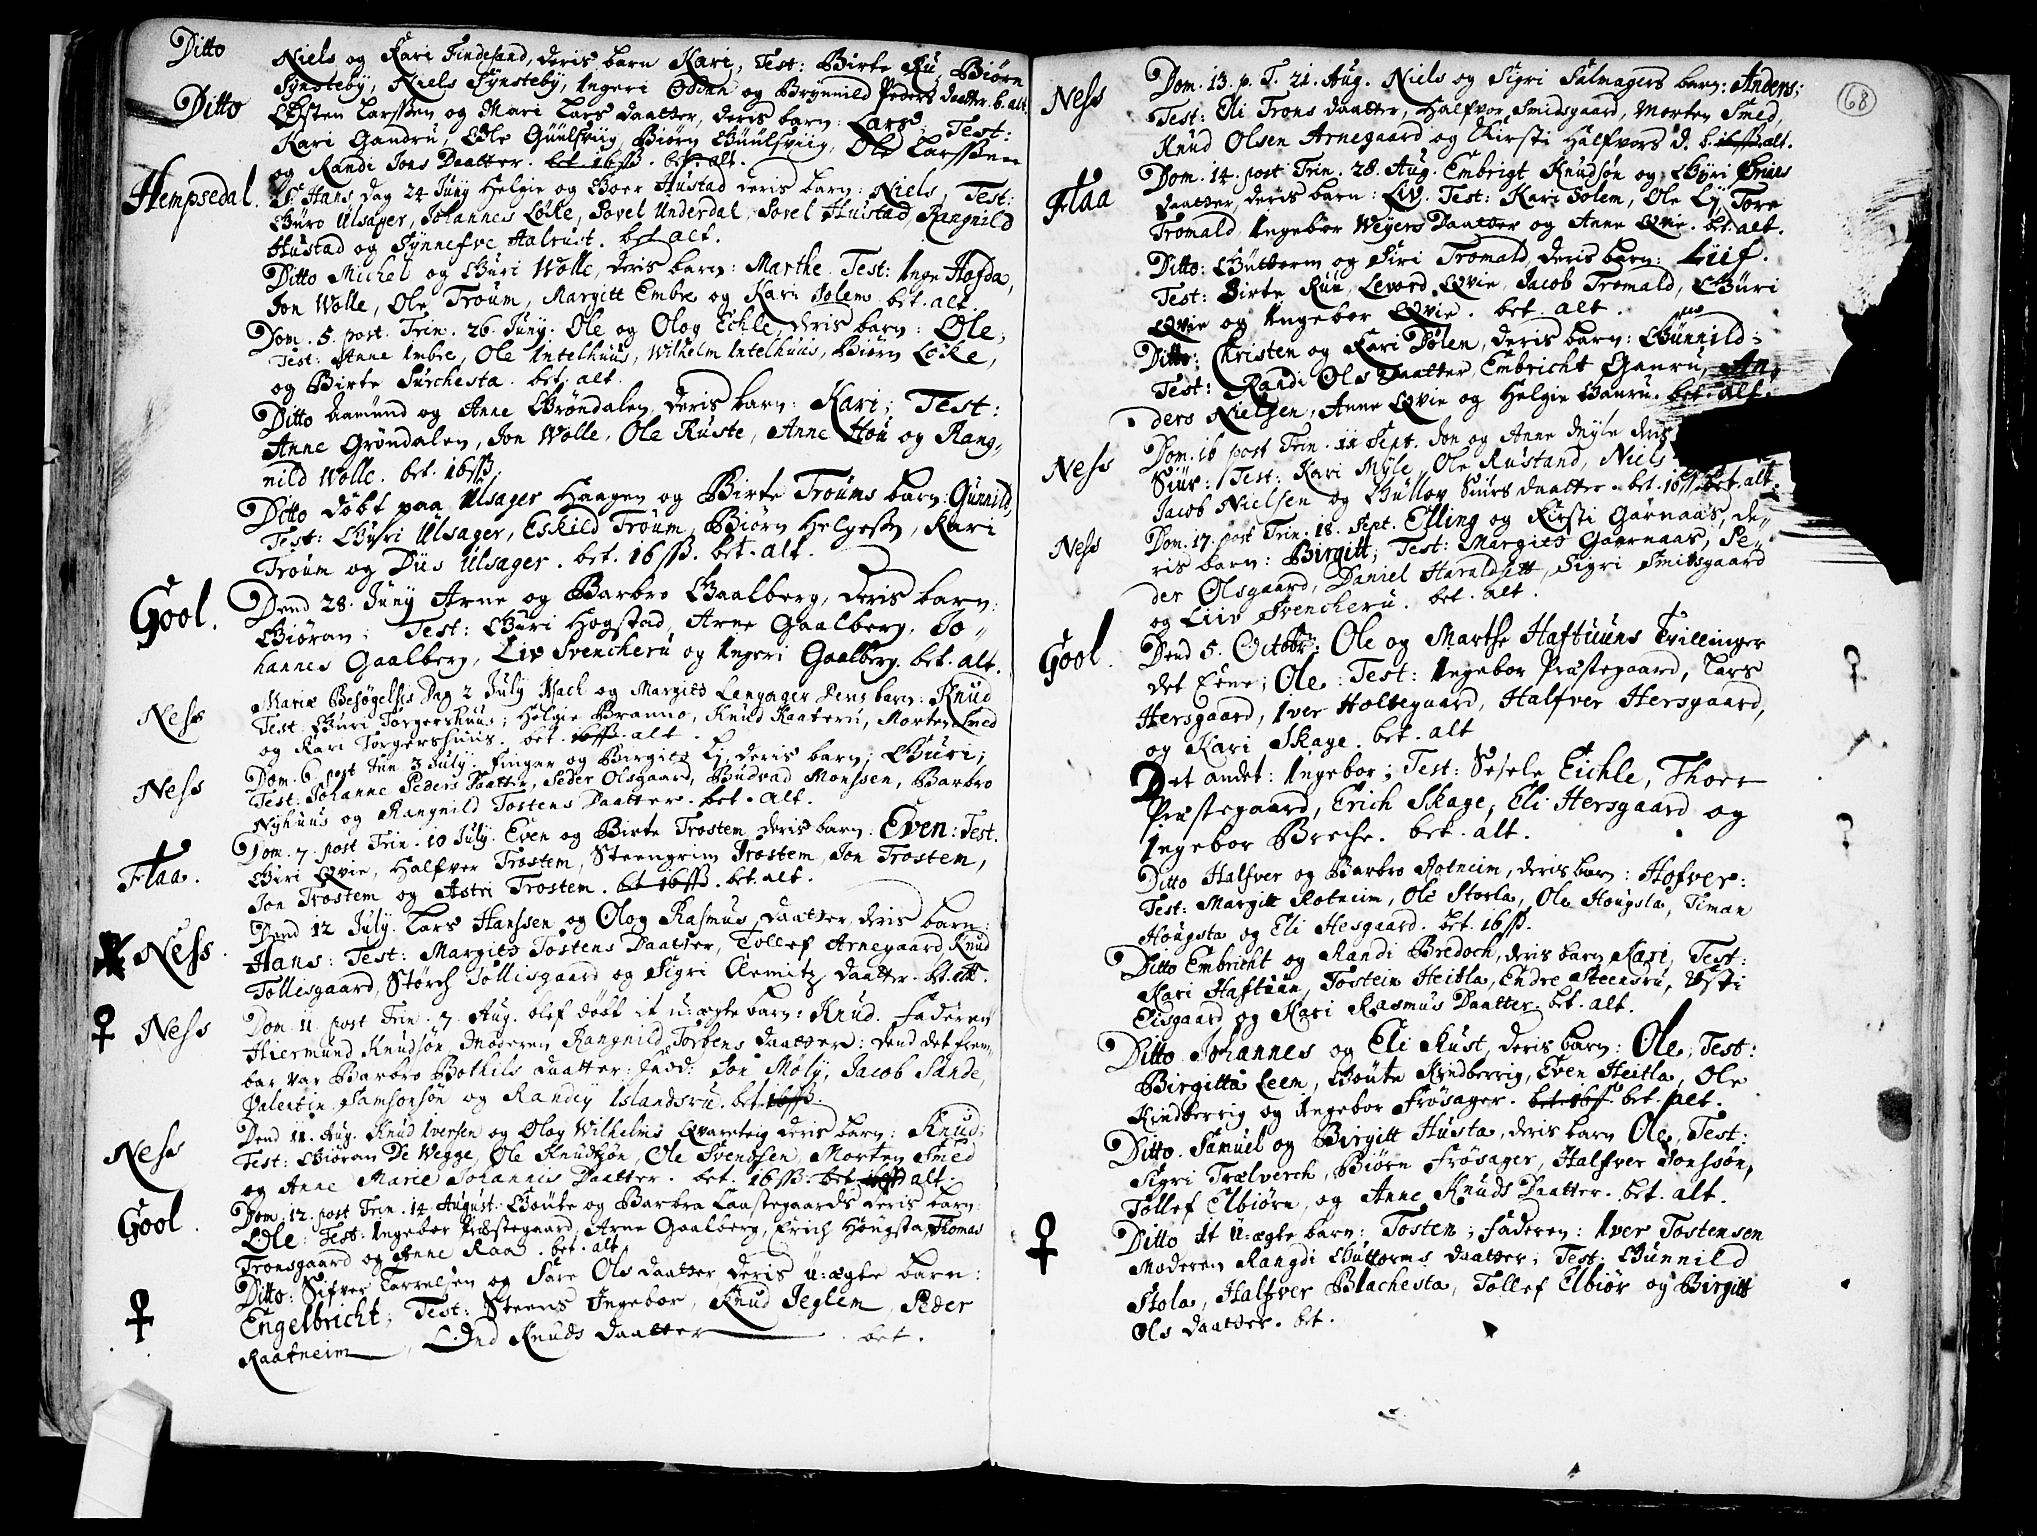 Ditto
Niels og Kari Findesand, deris barn Kari, Test: Birte Ru, Biørn
Synsteby, Niels Synsteby, Ingeri Oddan og Brynnild Peders daatter. b. alt.
Ditto
Østen Larssen og Mari Lars daatter, deris barn: Lars; Test:
Kari Gandru, Ole Guulsviig, Biørn Guulsviig, Ole Larssen
og Randi Jons Daatter. bet 16 ß. bet. alt.
Hempsedal.
St Hans dag 24 Juny Helgie og Goer Hustad deris barn: Niels, Test:
Guro Ulsager, Johannes Løcke, Povel Underdal, Povel Hustad, Rangnild
Hustad og Synnefve Halrust. bet alt.
Ditto Michel og Guri Wolle, deris barn: Marthe. Test: Inge Hofda,
Jon Wolle, Ole Troum, Margitt Embre og Kari Solem. bet. alt.
Dom. 5. post. Trin. 26. Juny. Ole og Olog Eckle, deris barn: Ole;
Test: Anne Imbre, Ole Intelhuus, Wilhelm Intelhuus, Biørn Løcke,
og Birte Surchesta. bet. alt.
Ditto Aamund og Anne Grøndalen, deris barn: Kari; Test:
Anne Grøndalen, Jon Wolle, Ole Ruste, Anne Hou og Rang-
nild Wolle. bet. 16 ß.
Ditto døbt paa Ulsager Haagen og Birte Troums barn: Gunnild,
Test: Guri Ulsager, Eskild Troum, Biørn Helgesen, Kari
Troum og Dus Ulsager. bet. 16 ß. bet. alt.
Gool.
Dend 28. Juny Arne og Barbro Gaalberg, deris barn:
Giøran; Test: Guri Hogstad, Arne Gaalberg, Jo-
hannes Gaalberg, Liv Svencheru og Ingeri Gaalberg. bet. alt.
Ness
Mariæ Besøgelses Dag 2 July Isach og Margits Lengager Dens barn: Knud
Test Guri Torgershuus; Helgie Branno, Knud Kaateru, Morten Smed
og Kari Torgershuus. bet. 16 ß. alt.
Ness
Dom. 6. post Trin 3 July. Fingar og Birgits Ly, deris barn; Guri;
Test: Johanne Peders Daatter, Peder Olsgaard, Gudvad Monssen, Barbro
Nyhuus og Rangnild Tostens Daatter. bet. alt.
Flaa.
Dom. 7. post Trin. 10 July. Even og Birte Trostem, deris barn: Even: Test.
Giri Qvie, Halfver Trostem, Steengrim Trostem, Jon Trostem,
Jon Trostem og Astri Trostem. bet 16 ß. bet. alt.
Ness.
Dend 12 July. Lars Hanssen og Olog Rasmus daatter, deris barn:
Hans: Test: Margits Tostens Daatter, Tollef Arnegaard, Knud
Tollesgaard, Størch Tollisgaard og Sigri Clemitz daatter. bt. alt.
♀ Ness
Dom. 11 post Trin. 7. Aug. blef døbt it u-ægte barn: Knud. Faderen
Hiermund Knudsøn, Moderen Rangnild Torbens daatter: Dend det frem-
bar var Barbro Bothils daatter: Fadd: Jon Moly, Jacob Sande,
Valentin Samsonsøn og Randiy Islandsru. bet. 16 ß.
Ness
Dend 11. Aug. Knud Iversen og Olog Wilhelms Qvarteig deris barn: Knud;
Test: Giøran De Wegge, Ole Knudsøn, Ole Svendsen, Morten Smed
og Anne Marie Johannis Daatter. bet. 16 ß. bet. alt.
Gool.
Dom. 12. post Trin. 14 August. Goute og Barbra Laastegaards deris barn:
Ole: Test: Ingebor Præstegaard, Arne Gaalberg, Erich Høngsta, Thomas
Tronsgaard og Anne Raa. bet. alt.
♀
Ditto: Sifver Torrelsen og Sare Ols daatter deris u-ægte barn:
Engelbricht; Test: Steens Ingebor, Knud Jeglem, Peder
Raatneim, Lind Knuds daatter. bet.
68
Ness
Dom. 13. p. T. 21. Aug. Niels og Sigri Salmagers barn: Anders;
Test: Eli Trons daatter, Halfvor Smidsgaard, Morten Smed,
Knud Olsen Arnegaard og Kirsti Halfvors d. b. 16 ß. alt.
Flaa
Dom. 14. post Trin. 28. Aug. Embrigt Knudsøn og Gyri Friies
daatter, deris barn: Liv. Test: Kari Solem, Ole Ly, Tore
Tromald, Ingebor Weyers Daatter og Anne Qvie. bet. alt.
Ditto: Guttorm og Siri Tromald, deris barn: Liif.
Test: Birte Ruu, Levord Qvie, Jacob Tromald, Guri
Qvie og Ingebor Qvie. bet. alt.
Ditto: Christen og Kari Dølen, deris barn: Gunnild:
Test: Randi Ols Daatter, Embricht Gauru, An-
ders Nielsen, Anne Qvie og Helgie Gauru. bet. alt.
Ness
Dom. 16 post Trin. 11 Sept. Jon og Anne Myle deris
Siur: Test: Kari Myle, Ole Rustand, Niels
Jacob Nielsen og Gullov Siurs daatter. bet. 16 ß. bet. alt.
Ness
Dom. 17. post Trin. 18. Sept. Elling og Kirsti Garnaas, de-
ris barn: Birgitt; Test: Margits Gaarnaas, Pe-
der Olsgaard, Daniel Haraldsett, Sigri Smitsgaard
og Liiv Svencheru. bet. alt.
Gool.
Dend 5. Octobr: Ole og Marthe Haftuuns Tvillinger
det Eene; Ole: Test: Ingebor Præstegaard, Lars
Hersgaard, Iver Holtegaard, Halfver Hersgaard,
og Kari Skage. bet. alt
Det andet: Ingebor; Test: Sesele Eichle, Thoer
Præstegaard, Erich Skage, Eli Hersgaard og
Ingebor Breche. bet. alt.
Ditto Halfver og Barbro Rotneim, deris barn: Hofver:
Test: Margitt Rotneim, Ole Storla, Ole Hougsta, Timan
Hougsta og Eli Hesgaard. bet. 16 ß.
Ditto Embricht og Randi Bredoch, deris barn Kari, Test:
Kari Haftuun, Tostein Heitla, Endre Steensru, Usti
Eisgaard og Kari Rasmus Daatter. bet. alt.
Ditto Johannes og Eli Rust, deris barn: Ole; Test:
Birgitta Leen, Goute Kyndberrig, Even Heitla, Ole
Kindberrig og Ingebor Frøsager. bet. 16 ß. bet. alt.
Ditto. Samuel og Birgitt Husta, deris barn Ole, Test:
Sigri Trælverch, Biørn Frøsager, Halfver Jonssøn,
Tollef Elbiørn, og Anne Knuds Daatter. bet. alt.
♀
Ditto it u-ægte barn: Tosten; Faderen: Iver Tostensen
Moderen Rangdi Guttorms daatter; Test: Gunnild
Stola, Halfver Blachesta, Tollef Elbiør og Birgitt
Ols daatter. bet.